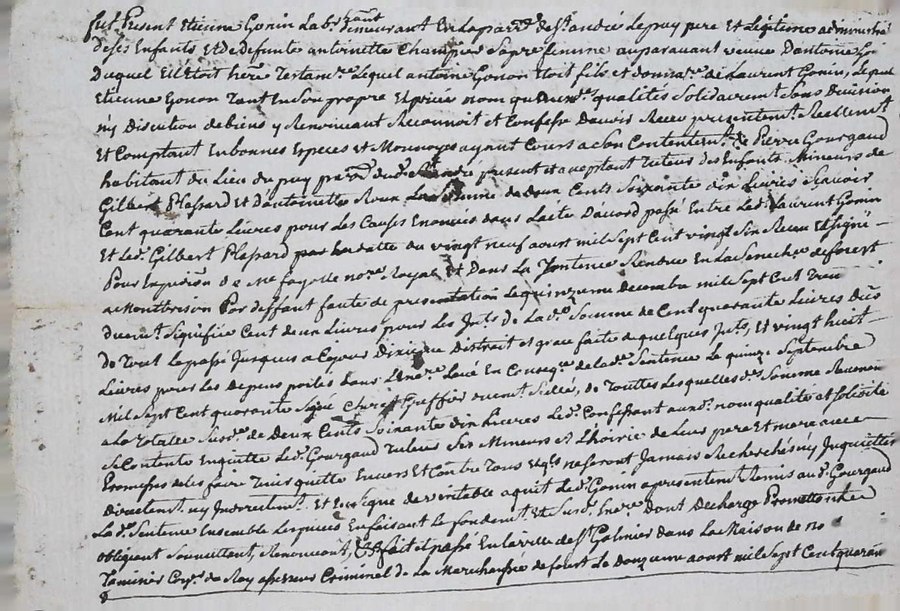 fut Present Etienne Gonin Lab.r demeurant En La parr.sse de St. andré Le puy pere Et Légitime administra
de ses Enfants Et de defunte antoinette Champier sa pre femme auparauant veuue D'antoine
Duquel Ell Etoit here Testam.re Lequel antoine Gonon Etoit fils et donat.re de Laurent Gonin, Lequel
Etienne Gonon Tant En Son propre Et priué nom qu'aux d. qualités Solidairemt Sans Diuision
ny Discution de biens y Renoncant Reconnoit et Confesse D'auoir Receu presentemt. Reellemt
Et Comptant En bonnes Especes et Monnoyes ayant Cours a Son Contentemt. de Pierre Gourgaud
habitant du Lieu du puy parr.sse dud. St. andré present et aceptant tuteur des Enfants Mineurs de
Gilbert Plassard Et D'antoinette Roux La Somme de deux Cents Soixante dix Liures Scauoir
Cent quarante Liures pour les Causes Enoncées dans L'aite D'acord passé Entre Led. Laurent Gonin
Et Led. Gilbert Plassard par sa datte du vingt neuf aoust mil Sept Cent vingt Six Receu Et Signé
Pour Expedition de Me fayolle no.re Royal Et Dans La Sentence Rendue En La Senech.ée de forest
a Montbrison Par deffaut faute de presentation Le quinzieme Decembre mil Sept Cent Tren
duemt. Signifiée Cent deux Liures pour Les Jnts. de La d. Somme de Cent quarante Liures Dûs
de Tout Le passé Jusques a Ce jour Dixieme Distrait et grace faite de quelques Jnts, Et vingt huit
Liures pour Les Depens portés dans L'Exre. Leué En Conseq.ce de La de. Sentence Le quinze Septembre
Mil Sept Cent quarante Signé Greffier duemt. Sellé, de Touttes Lesquelles d. Sommes Reuenant
a La totalle Susd. de Deux Cents Soixante dix Liures Led. Confessant auxd. nom qualité et Solidité
Se Contente En quitte Led. Gourgaud Tuteur Ses Mineurs Et L'hoirie de Leur pere Et mere auec
Promesses de Les faire Tenir quitte Enuers Et Contre Tous Et qls. ne Seront Jamais Recherchés ny Jnquiettés
Directemt. ny Jndirectemt. Et En Signe de veritable aquit Led. Gonin a presentemt. Remis aud. Gourgaud
La d. Sentence Ensemble Les pieces En faisant Le fondemt. Et Susd. Exre. Dont Decharge Promettant
obligeant Soumettent, Renoncent, fait et passé En La ville de St. Galmier dans La Maison de no
Taminier Con.er du Roy assesseur Criminel de La Marechaussée de forest Le Douzieme aoust mil Sept Cent quaran